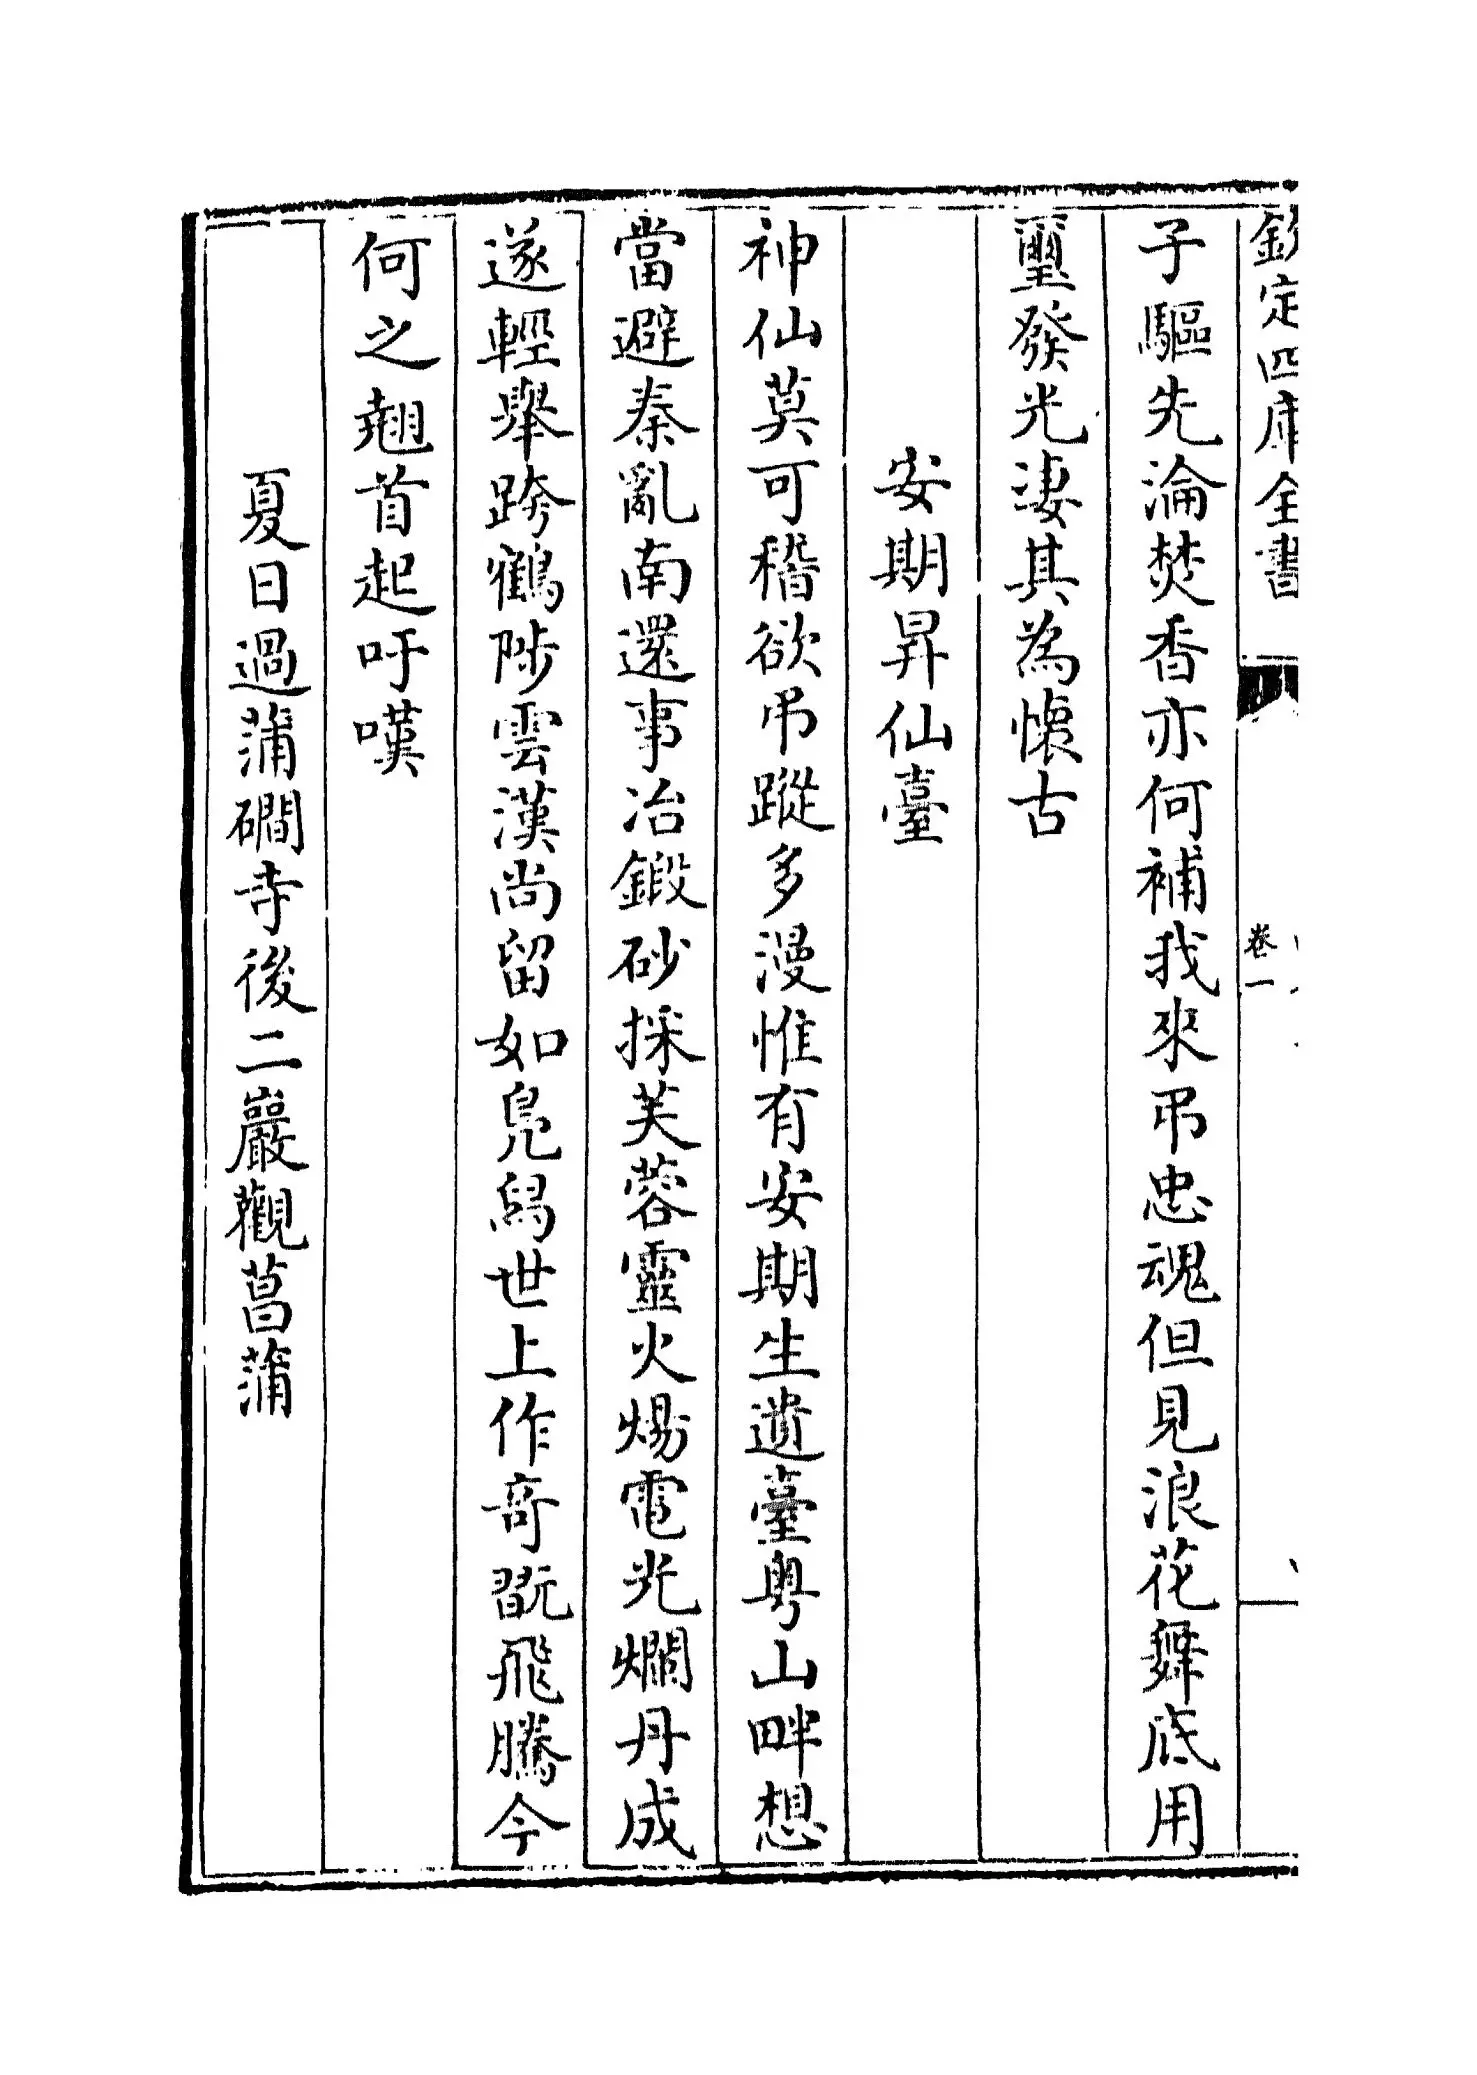 欽定四庫全書
卷一
子驅先淪焚香亦何補我來弔忠魂但見浪花舞底用
璽發光淒其為懷古
安期昇仙臺
神仙莫可稽欲弔蹤多漫惟有安期生遺臺粤山畔想
當避秦亂南還事冶鍛砂採芙蓉靈火煬電光爛丹成
遂輕舉跨鶴陟雲漢尚留如鳧舄世上作奇翫飛騰今
何之翹首起吁嘆
夏日過蒲磵寺後二巖觀菖蒲